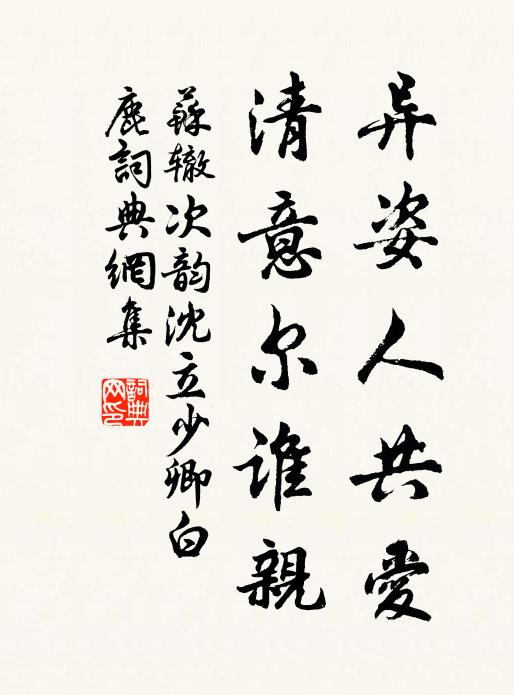 异姿人共愛
清意尔谁親
蘇辙次韵沈立少卿白
鹿詞典網集
詞典
网印